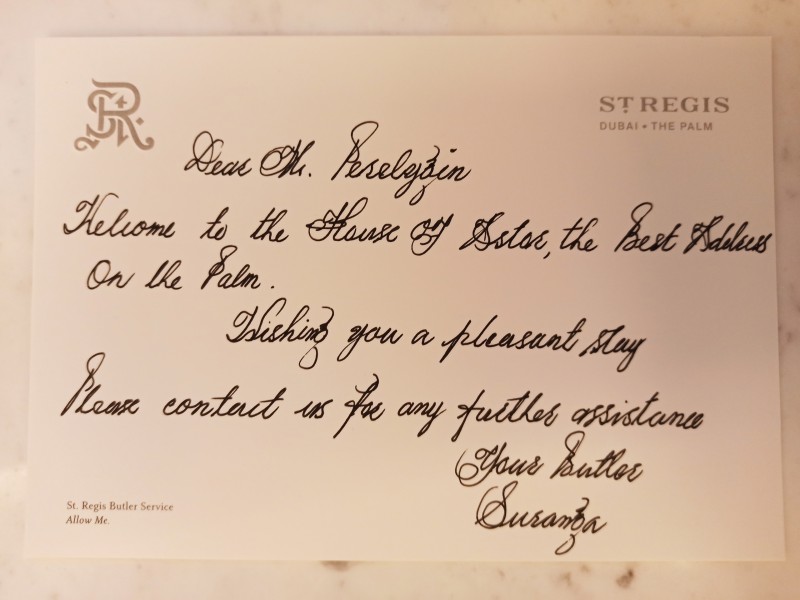 SR
ST. REGIS
DUBAI • THE PALM
Dear Mr. Perelygin
Welcome to the House Of Astor, the Best Address
On the Palm.
Wishing you a pleasant stay
Please contact us for any further assistance
Your Butler
Suranga
St. Regis Butler Service
Allow Me.